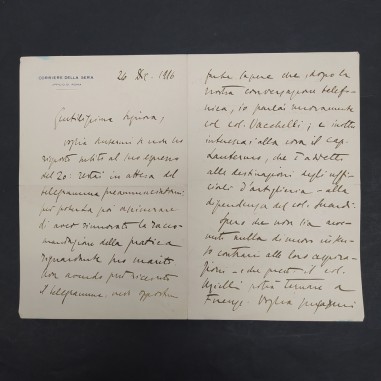 CORRIERE DELLA SERA
26 Dic. 1916
Gentilissima Signora,
voglia scusarmi se non ho
risposto subito al suo espresso
del 20: restai in attesa del
telegramma preannunciatomi
per poterla poi assicurare
di aver rinnovata la racco-
mandazione della pratica
riguardante suo marito
Non avendo però ricevuto
il telegramma credo opportuno
farle sapere che, dopo la
nostra conversazione telefo-
nica, io parlai nuovamente
col col. Vacchelli; e inoltre
interessai alla cosa il cap.
che è addetto
alle destinazioni degli uffi-
ciali d'artiglieria - alla
dipendenza del col.
Spero che non sia avve-
nuto nulla di nuovo in
contrario alle loro aspira-
zioni - e che presto il col.
potrà tornare a
Firenze. Voglia